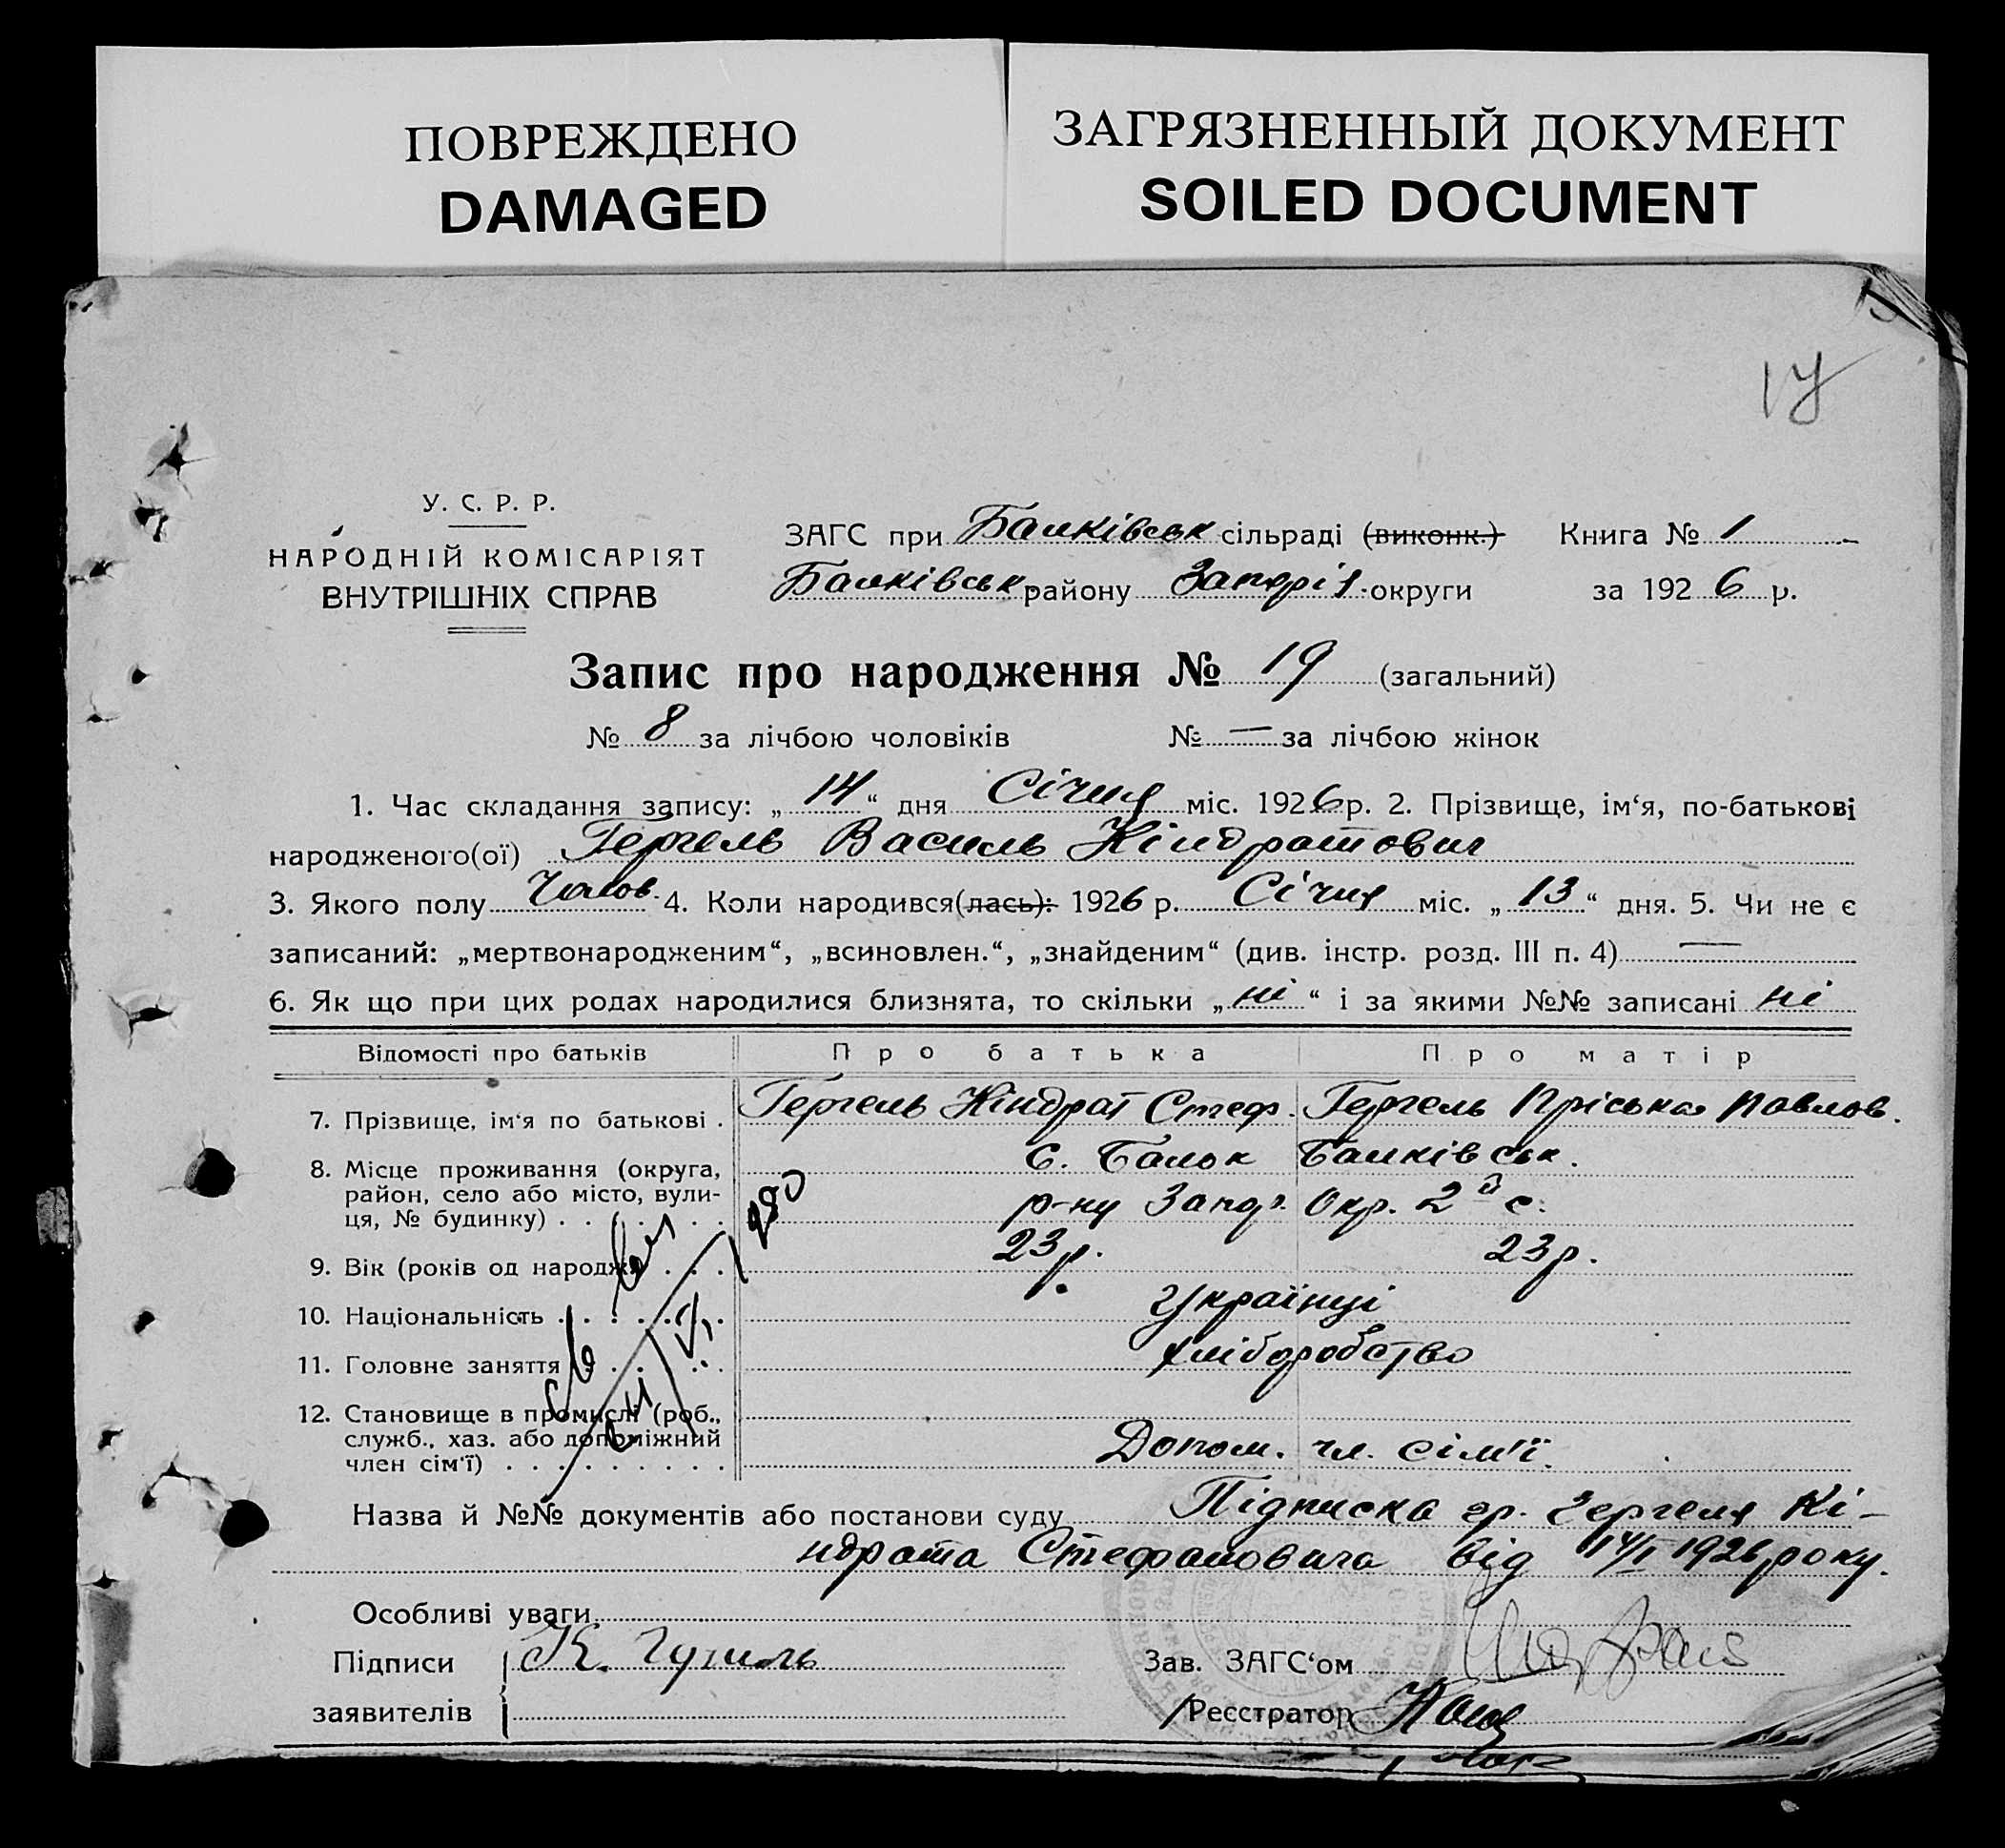 ПОВРЕЖДЕНО
DAMAGED
ЗАГРЯЗНЕННЫЙ ДОКУМЕНТ
SOILED DOCUMENT
17
У. С. Р. Р.
НАРОДНІЙ КОМІСАРІЯТ
ВНУТРІШНІХ СПРАВ
ЗАГС при Балківськ сільраді (виконк.) Книга № 1
Балківськ району Запоріз. округи за 1926 р.
Запис про народження № 19 (загальний)
№ 8 за лічбою чоловіків № — за лічбою жінок
1. Час складання запису: „14“ дня Січня міс. 1926 р. 2. Прізвище, ім‘я, по-батькові
народженого(ої) Гергель Василь Кіндратович
3. Якого полу Чолов. 4. Коли народився(лась): 1926 р. Січня міс. „13“ дня. 5. Чи не є
записаний: „мертвонародженим“, „всиновлен.“, „знайденим“ (див. інстр. розд. III п. 4) —
6. Як що при цих родах народилися близнята, то скільки „ні“ і за якими №№ записані ні
Відомості про батьків Про батька Про матір
7. Прізвище, ім‘я по батькові . Гергель Кіндрат Стеф. Гергель Пріська Павлов.
8. Місце проживання (округа, район, село або місто, вулиця, № будинку) . . . . . . С. Балок Балківськ.
р-ну Запор. Окр. 2й с.
9. Вік (років од народж. . . . 23 р. 23 р.
10. Національність . . . . . . Українці
11. Головне заняття . . . . . хліборобство
12. Становище в промислі (роб., служб., хаз. або допоміжний член сім‘ї) . . . . . . . . . Допом. чл. сім'ї.
Назва й №№ документів або постанови суду Підписка гр. Гергеля Кі-
ндрата Стефановича від 14/I 1926 року.
Особливі уваги
Підписи К. Гергель Зав. ЗАГС‘ом
заявителів Реєстратор